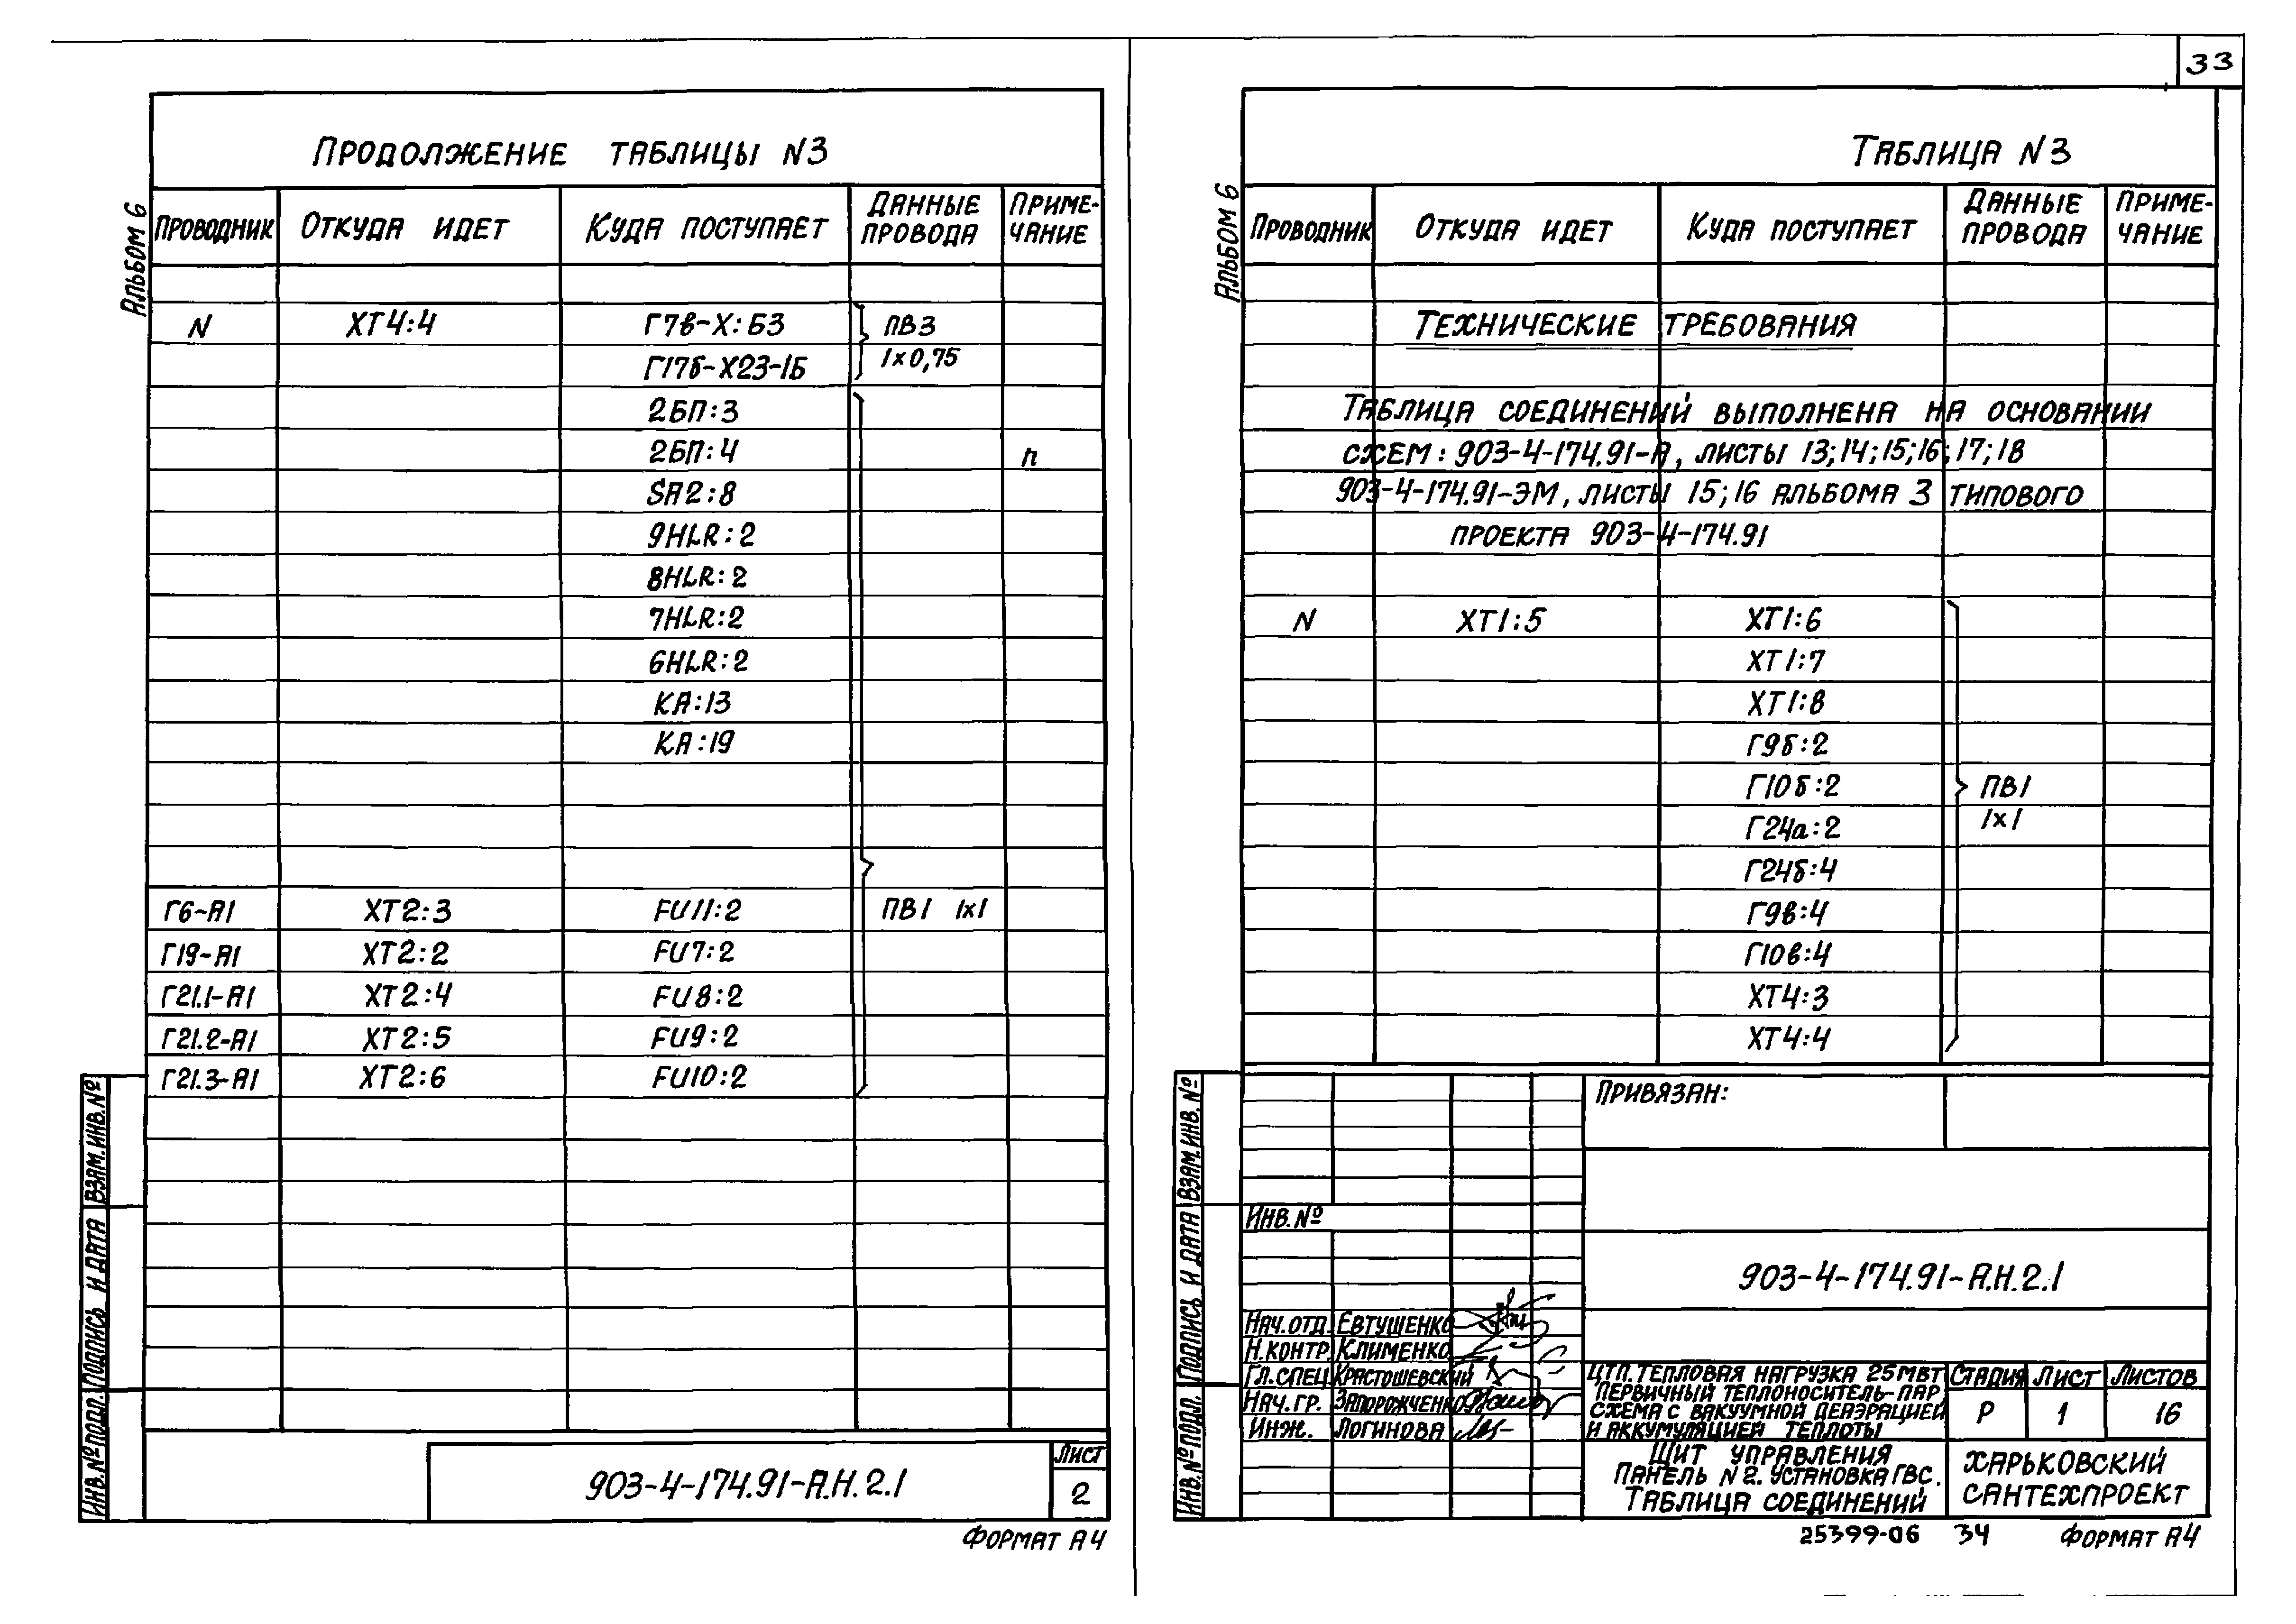 33
Продолжение таблицы N3
Альбом 6
Проводник Откуда идет Куда поступает Данные провода Приме-чание
N ХТ4:4 Г7в-Х:Б3 ПВ3
Г17б-Х23-1Б 1х0,75
2БП:3
2БП:4 п
SA2:8
9HLR:2
8HLR:2
7HLR:2
6HLR:2
КА:13
КА:19
Г6-А1 ХТ2:3 FU11:2 ПВ1 1х1
Г19-А1 ХТ2:2 FU7:2
Г21.1-А1 ХТ2:4 FU8:2
Г21.2-А1 ХТ2:5 FU9:2
Г21.3-А1 ХТ2:6 FU10:2
Взам.инв.№
Подпись и дата
Инв.№ подл.
903-4-174.91-А.Н.2.1
Лист
2
Формат А4
Таблица N3
Альбом 6
Проводник Откуда идет Куда поступает Данные провода Приме-чание
Технические требования
Таблица соединений выполнена на основании
схем: 903-4-174.91-А, листы 13;14;15;16;17;18
903-4-174.91-ЭМ, листы 15;16 альбома 3 типового
проекта 903-4-174.91
N ХТ1:5 ХТ1:6
ХТ1:7
ХТ1:8
Г9б:2
Г10б:2 ПВ1
Г24а:2 1х1
Г24б:4
Г9в:4
Г10в:4
ХТ4:3
ХТ4:4
Взам.инв.№
Подпись и дата
Инв.№ подл.
Привязан:
Инв.№
903-4-174.91-А.Н.2.1
Нач.отд. Евтушенко
Н.контр. Клименко
Гл.спец. Красташевский
Нач.гр. Запорожченко
Инж. Логинова
ЦТП. Тепловая нагрузка 25МВт
Первичный теплоноситель-пар
Схема с вакуумной деаэрацией
и аккумуляцией теплоты
Стадия Лист Листов
Р 1 16
Щит управления
Панель N2. Установка ГВС.
Таблица соединений
Харьковский
Сантехпроект
25399-06 34 Формат А4